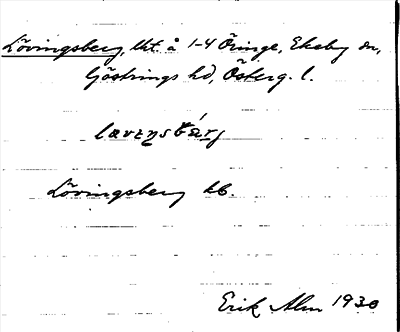 Lövingsberg, lht. å 1-4 Öringe, Ekeby sn,
Göstrings hd, Österg. l.
Lövingsberg kb.
Erik Alm 1930